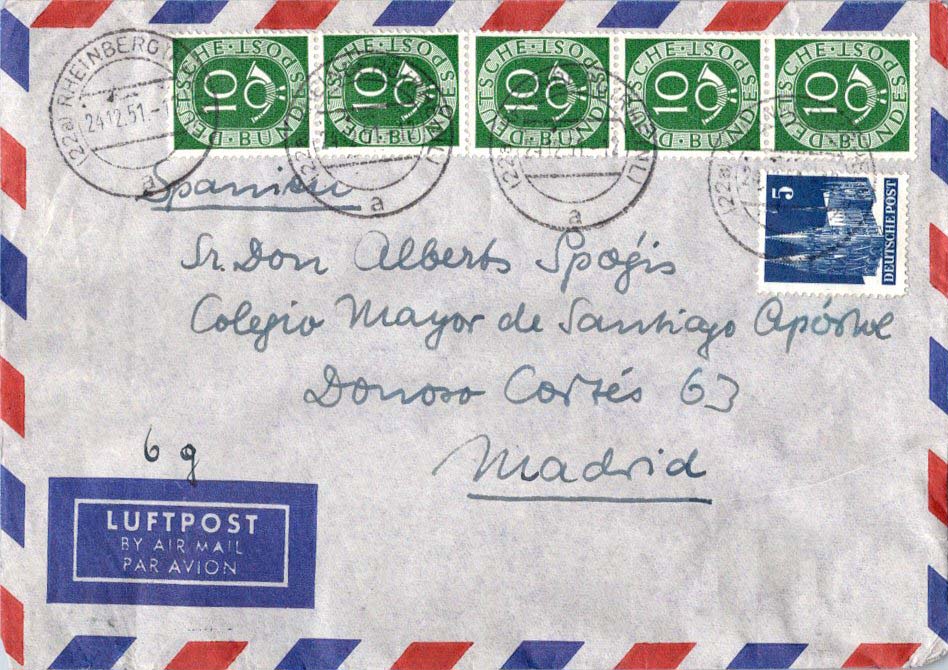 (22a) RHEINBERG
24.12.51
a
DEUTSCHE · BUNDESPOST 10
DEUTSCHE · BUNDESPOST 10
DEUTSCHE · BUNDESPOST 10
DEUTSCHE · BUNDESPOST 10
DEUTSCHE · BUNDESPOST 10
a
a
(22a)
5 DEUTSCHE POST
Spanien
Sr. Don Alberts
Colegio Mayor de Santiago Apóstol
Donoso Cortés 63
Madrid
6 g
LUFTPOST
BY AIR MAIL
PAR AVION